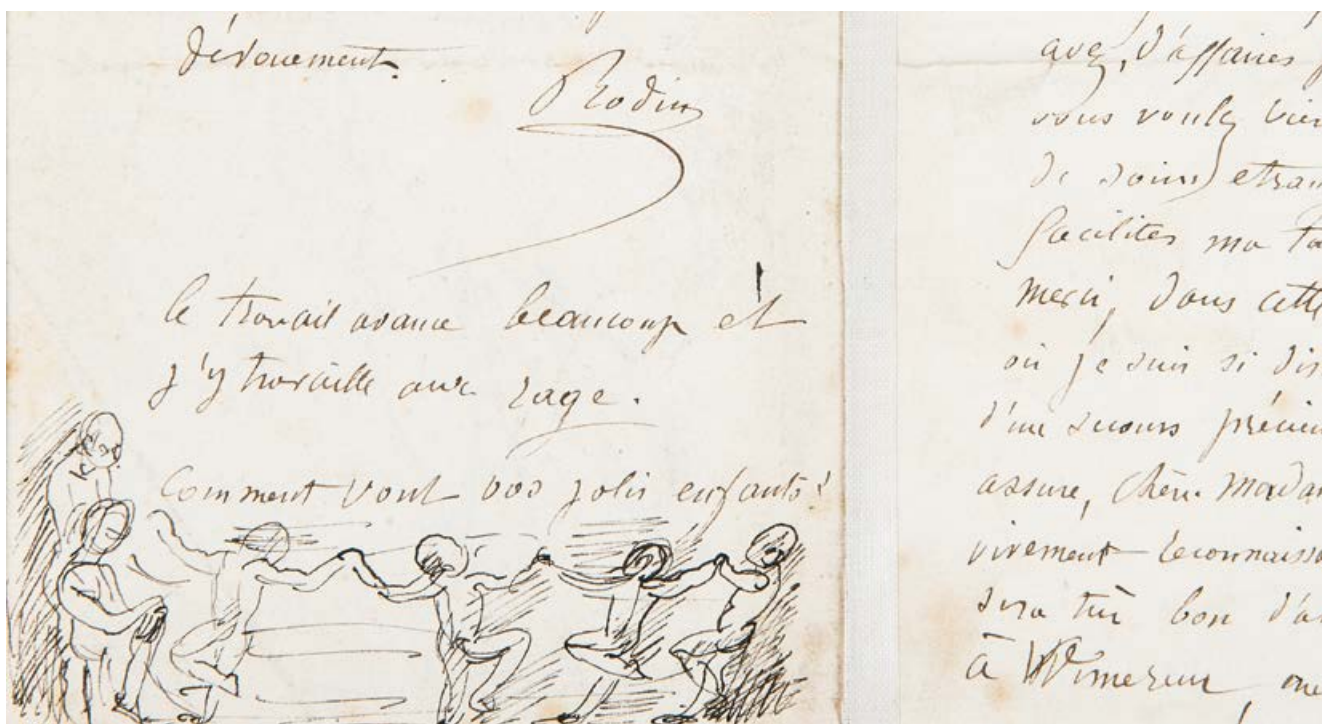 dévouement.
Rodin
le travail avance beaucoup et
j'y travaille avec rage.
Comment vont vos jolis enfants?
avez d'affaires
vous voulez bien
de soins
facilites ma
merci, dans cette
où je suis si
d'un secours
assure, Chère Madam
vivement reconnaiss
sera très bon d'a
à Wimereux